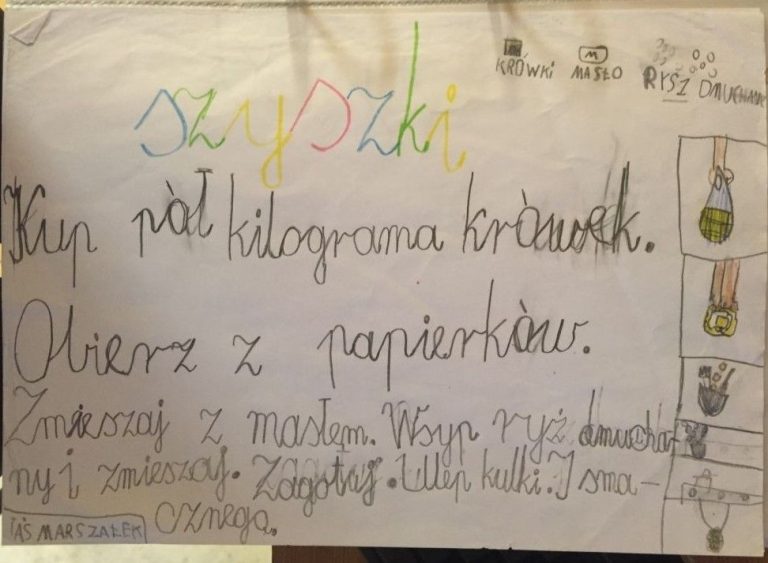 KRÓWKI MASŁO RYSZ DMUCHANY
szyszki
Kup pòł kilograma kròwek.
Obierz z papierkòw.
Zmieszaj z masłem. Wsyp ryż dmucha-
ny i zmieszaj. Zagotuj. Ulep kulki. I sma-
cznego.
MARSZAŁEK